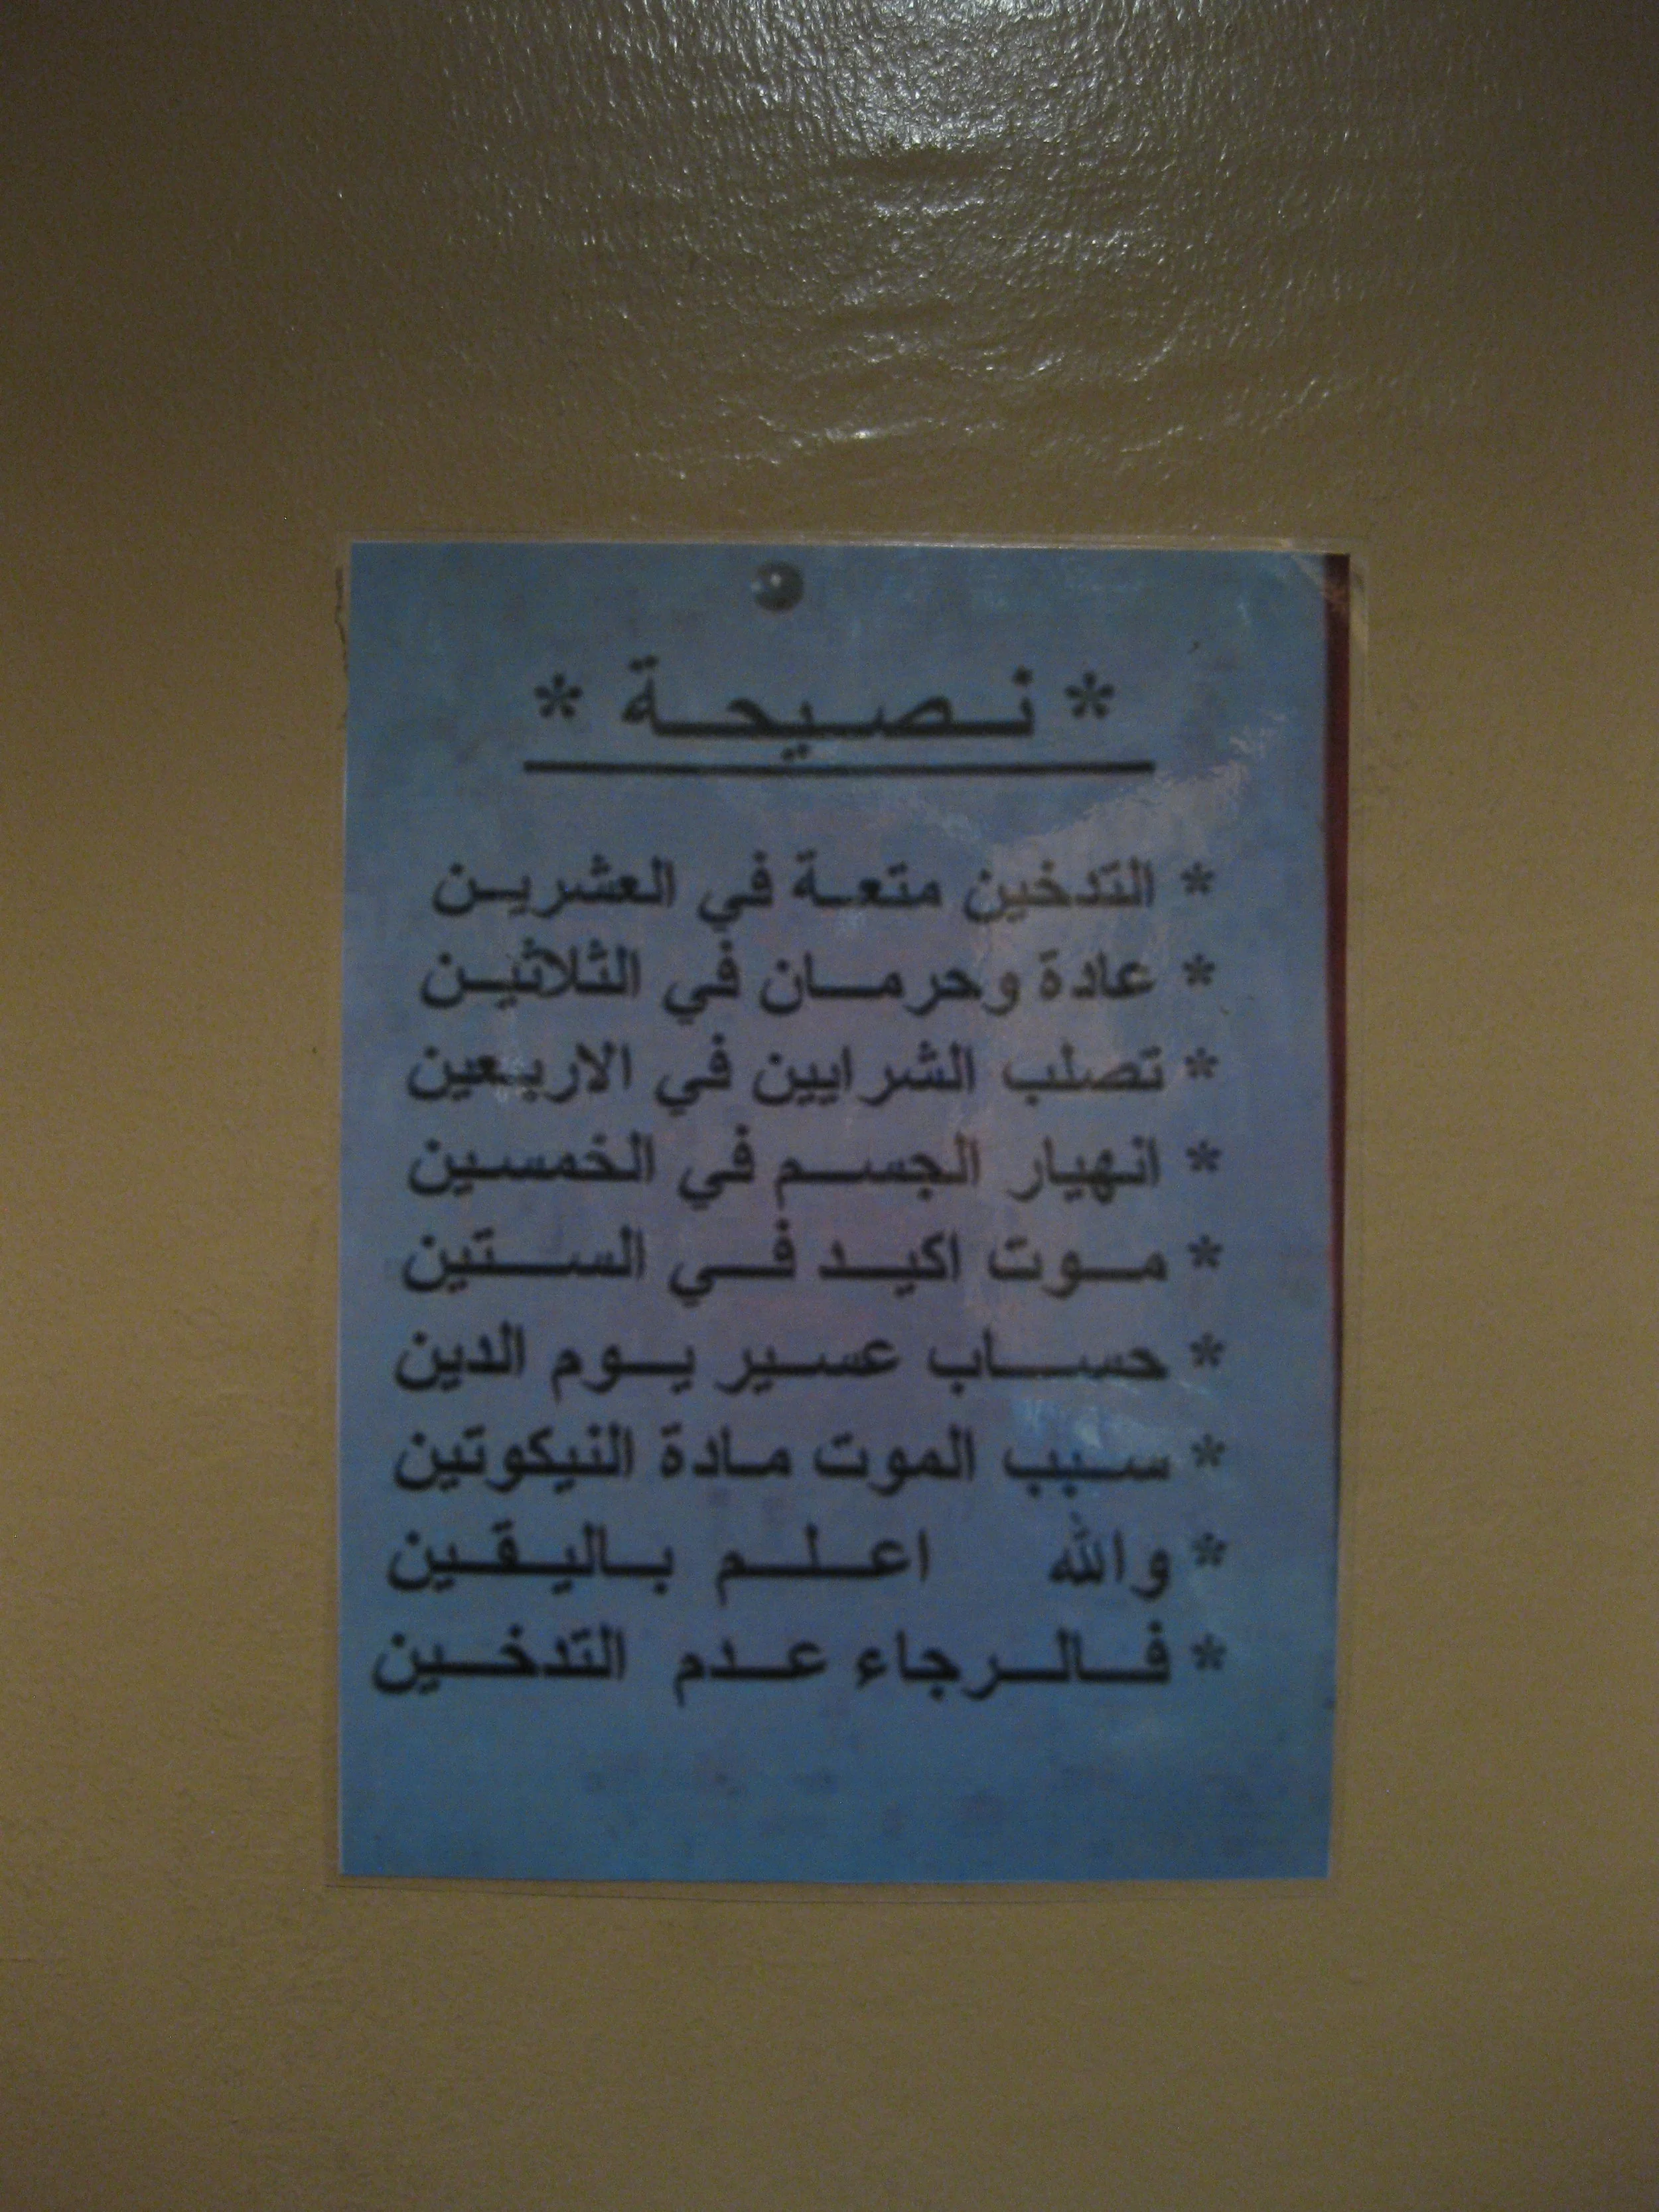 * نصيحة *
* التدخين متعة في العشرين
* عادة وحرمان في الثلاثين
* تصلب الشرايين في الاربعين
* انهيار الجسم في الخمسين
* موت اكيد في الستين
* حساب عسير يوم الدين
* سبب الموت مادة النيكوتين
* والله اعلم باليقين
* فالرجاء عدم التدخين